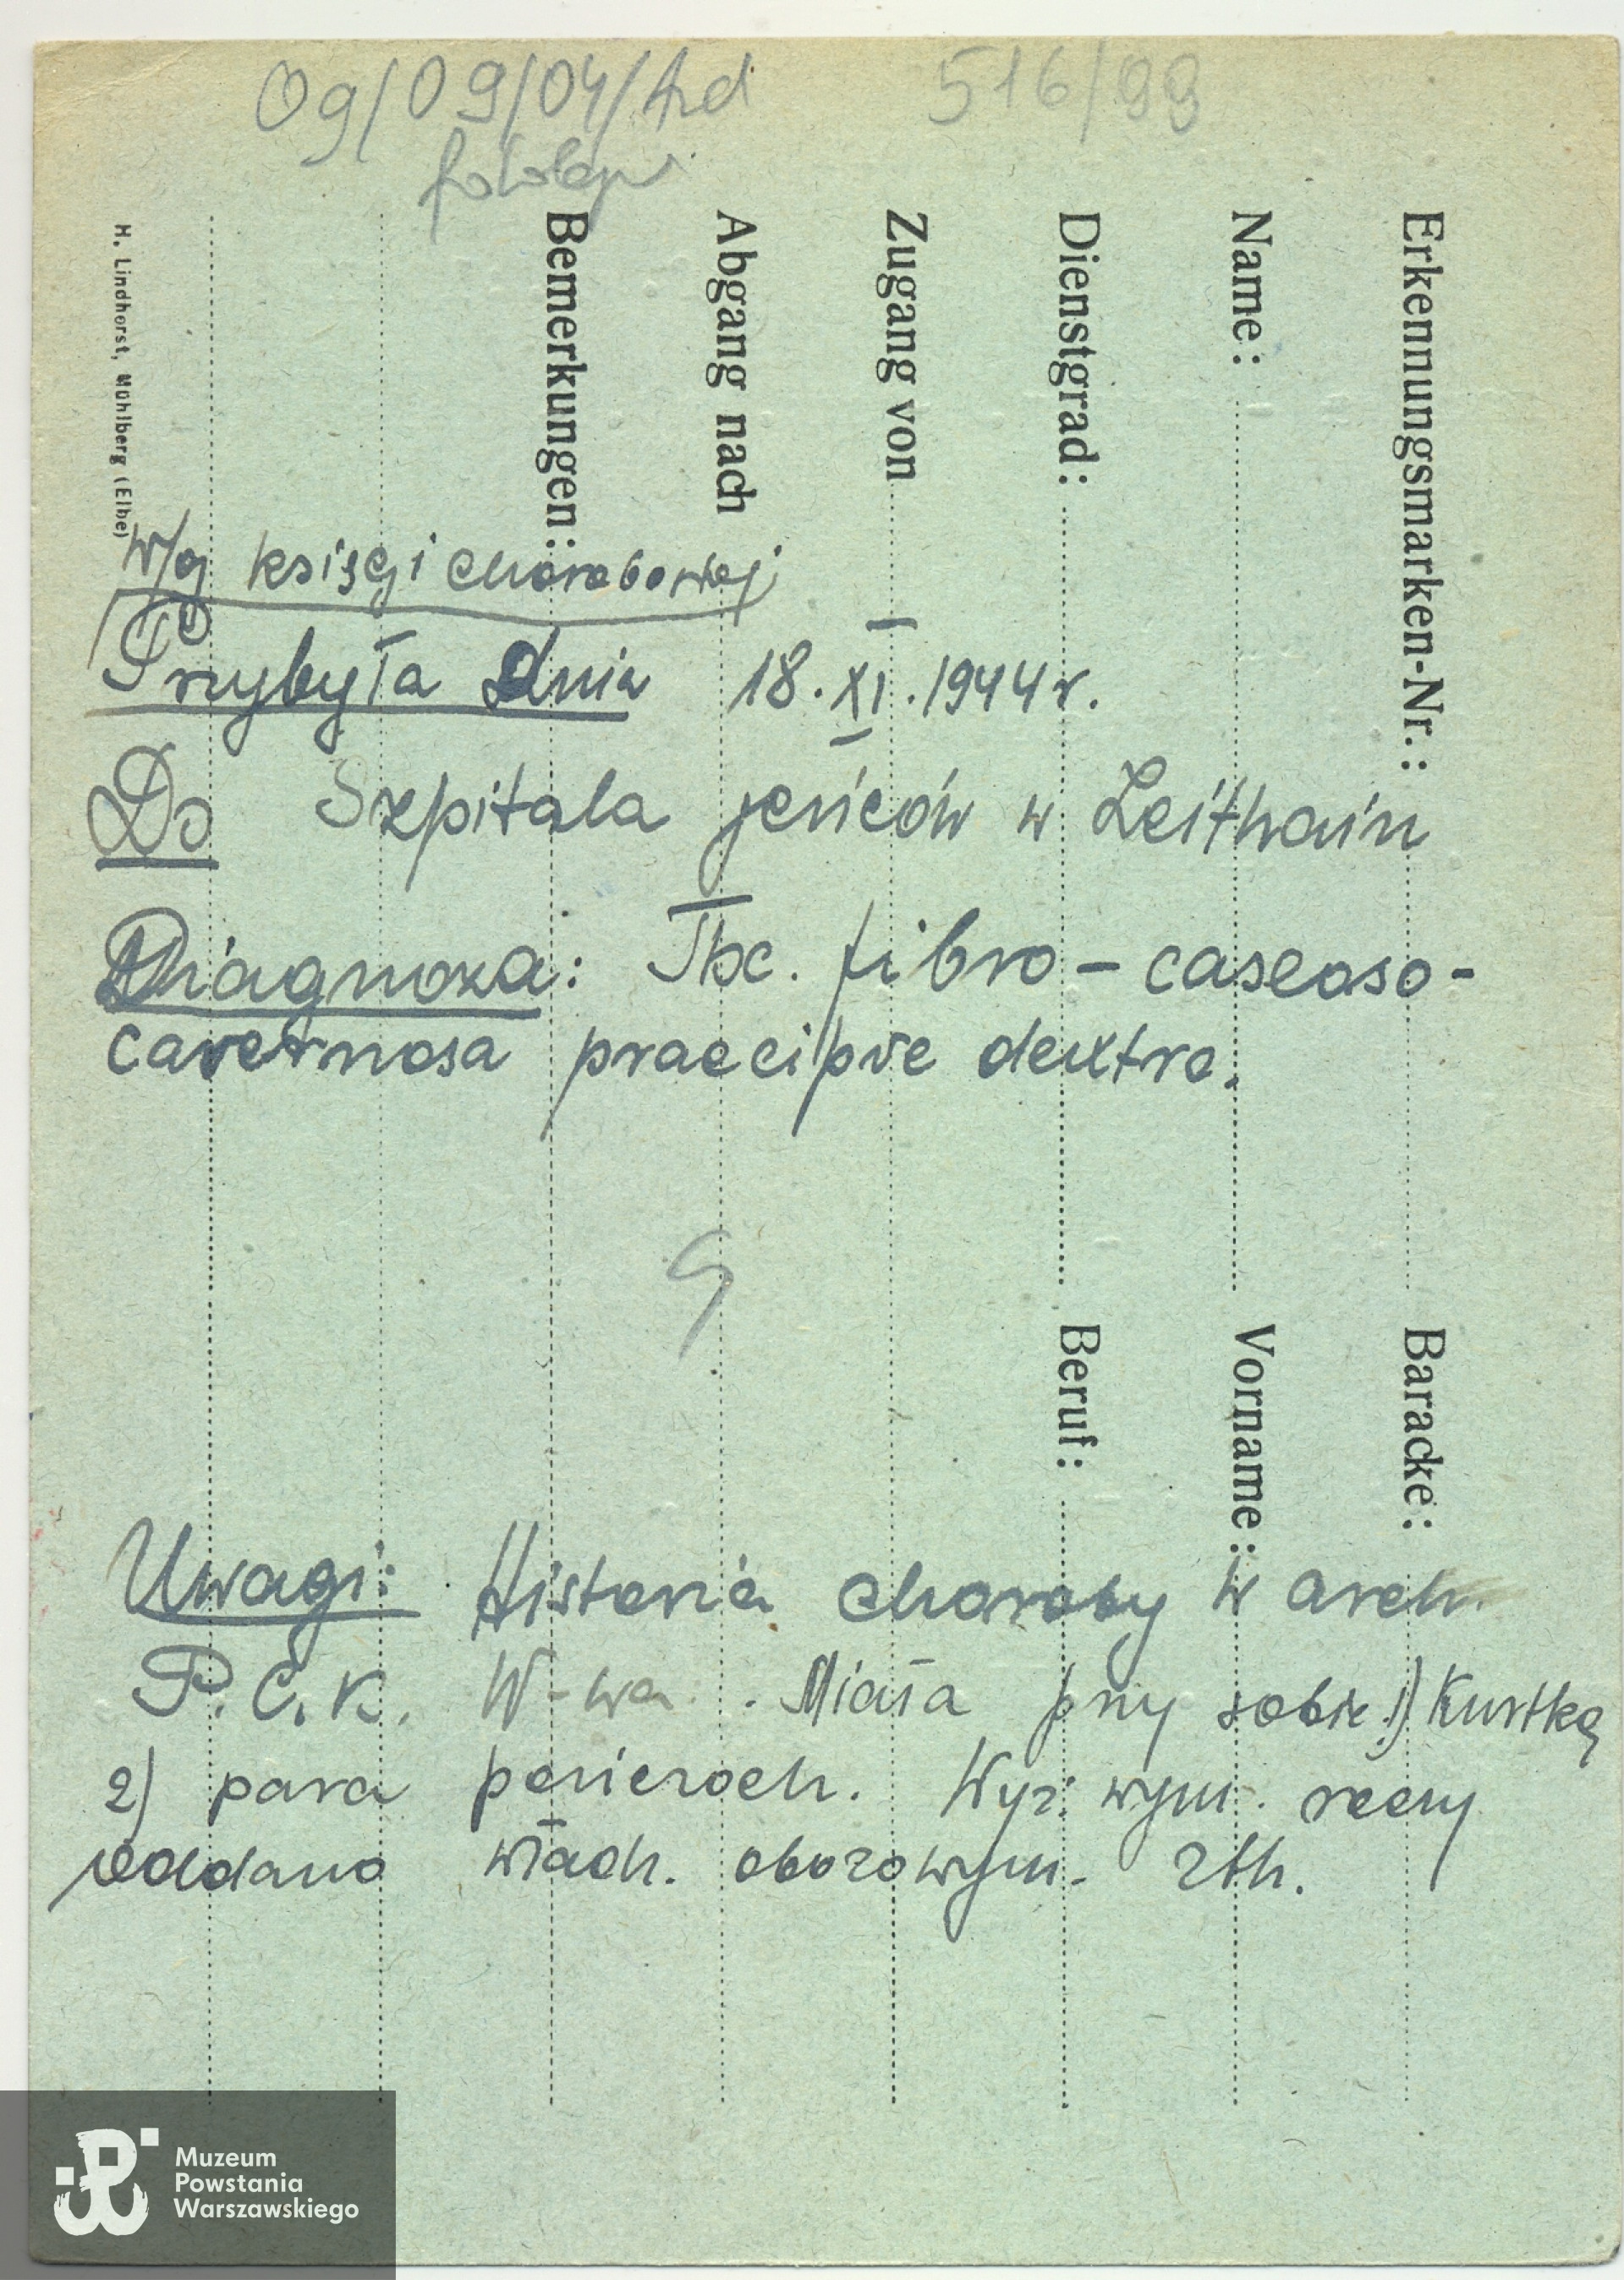 09/09/04/hd 516/99
W/g księgi chorobowej
Przybyła Dnia 18.XI.1944 r.
Do Szpitala jeńców w Zeithain
Diagnoza: Tbc. fibro-caseoso-
cavernosa praecipue dextra.
Uwagi: Historia choroby w arch.
P.C.K. W-wa. Miała przy sobie 1) Kurtkę
2) para pończoch. Wyż. wym. rzeczy
oddano władz. obozowym. Zth.
Erkennungsmarken-Nr.: Baracke:
Name: Vorname:
Dienstgrad: Beruf:
Zugang von
Abgang nach
Bemerkungen:
H. Lindhorst, Mühlberg (Elbe)
Muzeum
Powstania
Warszawskiego